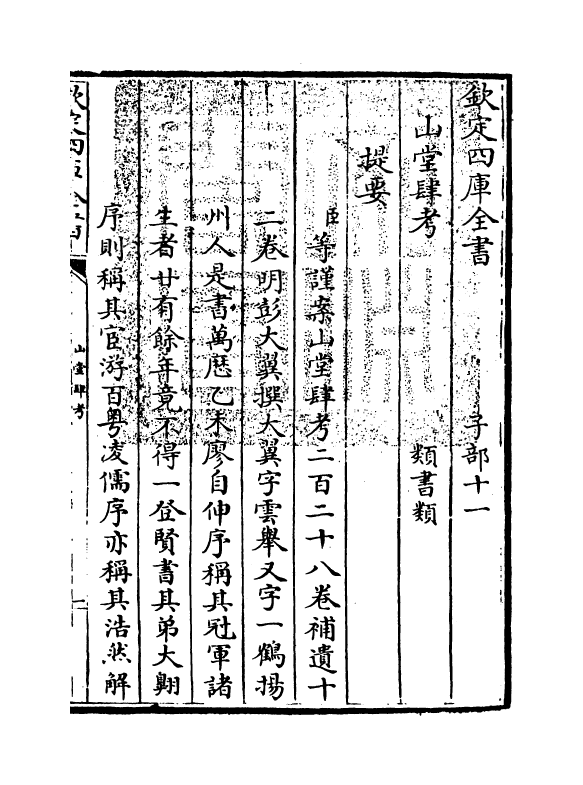 欽定四庫全書　子部十一
山堂肆考　類書類
提要
臣等謹案山堂肆考二百二十八卷補遺十
二卷明彭大翼撰大翼字雲舉又字一鶴揚
州人是書萬厯乙未廖自伸序稱其冠軍諸
生者廿有餘年竟不得一登賢書其弟大翺
序則稱其宦游百粤凌儒序亦稱其浩然解
山堂肆考